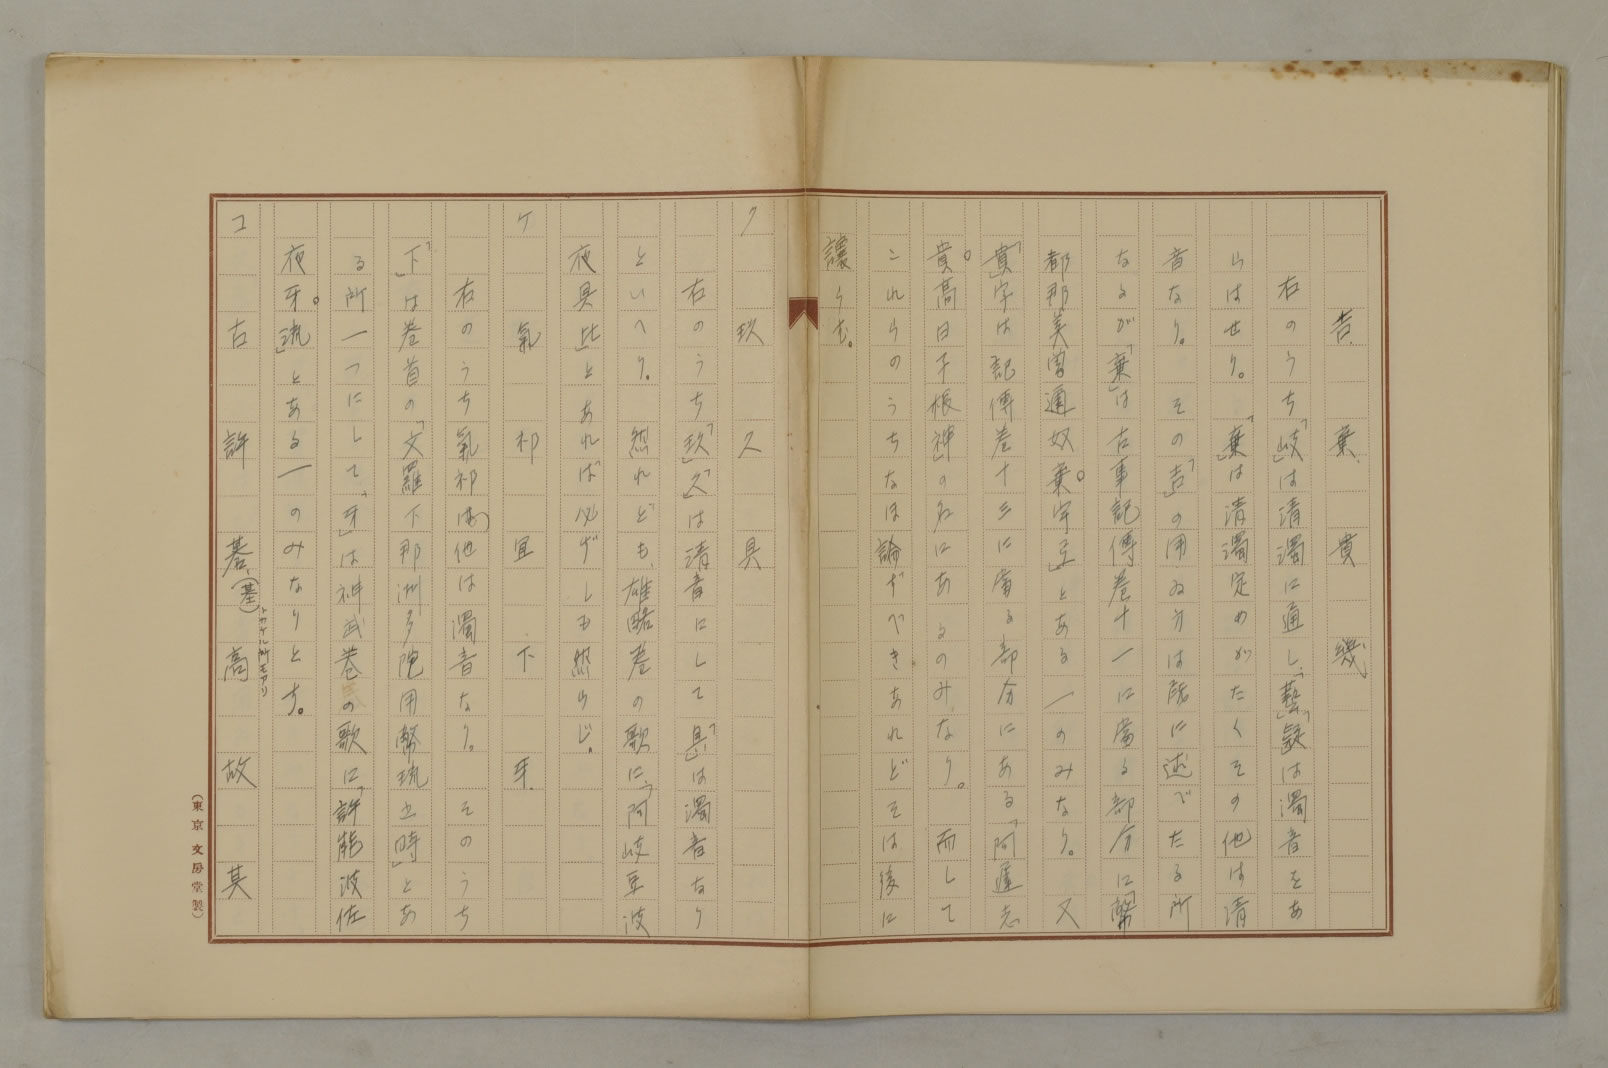 吉、棄、貴 幾
右のうち「岐」は清濁に通し、「藝」「疑」は濁音をあ
らはせり。「棄」は清濁定めがたくその他は清
音なり。その「吉」の用ゐ方は既に述べたる所
なるが「棄」は古事記傳巻十一に當る部分に「幣
都那美曽邇奴棄宇弖」とある一のみなり。又
「貴」字は記傳巻十三に當る部分にある「阿遲志
貴高日子根神」の名にあるのみなり。而して
これらのうちなほ論ずべきあれどそは後に
讓らむ。
ク 玖 久 具
右のうち「玖」「久」は清音にして「具」は濁音なり
といへり。然れども、雄略巻の歌に、「阿岐豆波
夜具比」とあれば必ずしも然らじ。
ケ 氣 祁 宜 下 牙
右のうち氣祁は他は濁音なり。そのうち
「下」は巻首の「文羅下那洲多陀用幣琉之時」とあ
る所一つにして、「牙」は神武巻の歌に「許能波佐
夜牙流」とある一のみなりとす。
コ 古 許 碁、(基) 高 故 其
トカケル所モアリ
(東京 文房堂製)